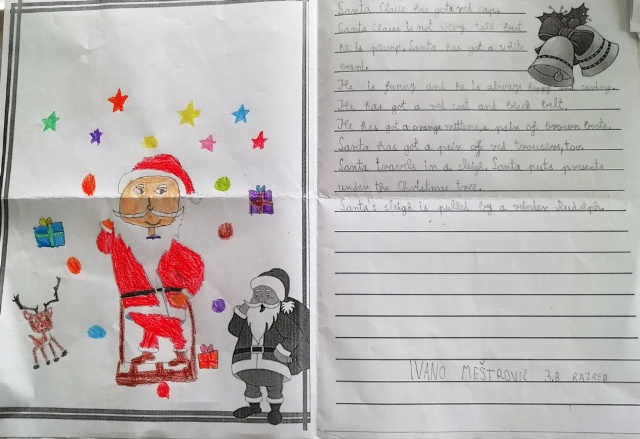 Santa Claus has got a red cap.
Santa Claus is not very tall but
he is plump. Santa has got a white
beard.
He is funny and he is always happy and caring.
He has got a red coat and black belt.
He has got a orange mittens, a pair of brown boots.
Santa has got a pair of red trousers, too.
Santa travels in a sleigh. Santa puts presents
under the Christmas tree.
Santa's sleigh is pulled by a reinder Rudolph.
IVANO MEŠTROVIĆ 3.a RAZRED